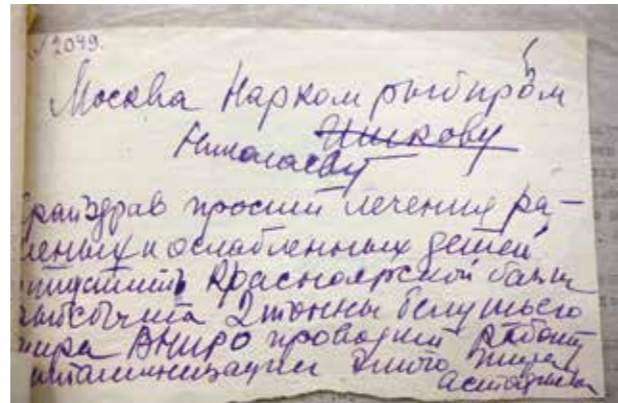 2049.
Москва Наркомрыбпром
Ишкову
Николаеву
Крайздрав просит лечения ра-
неных и ослабленных детей
отпустить Красноярской базы
рыбсбыта 2 тонны белушьего
жира ВНИРО проводит работу
витаминизации этого жира